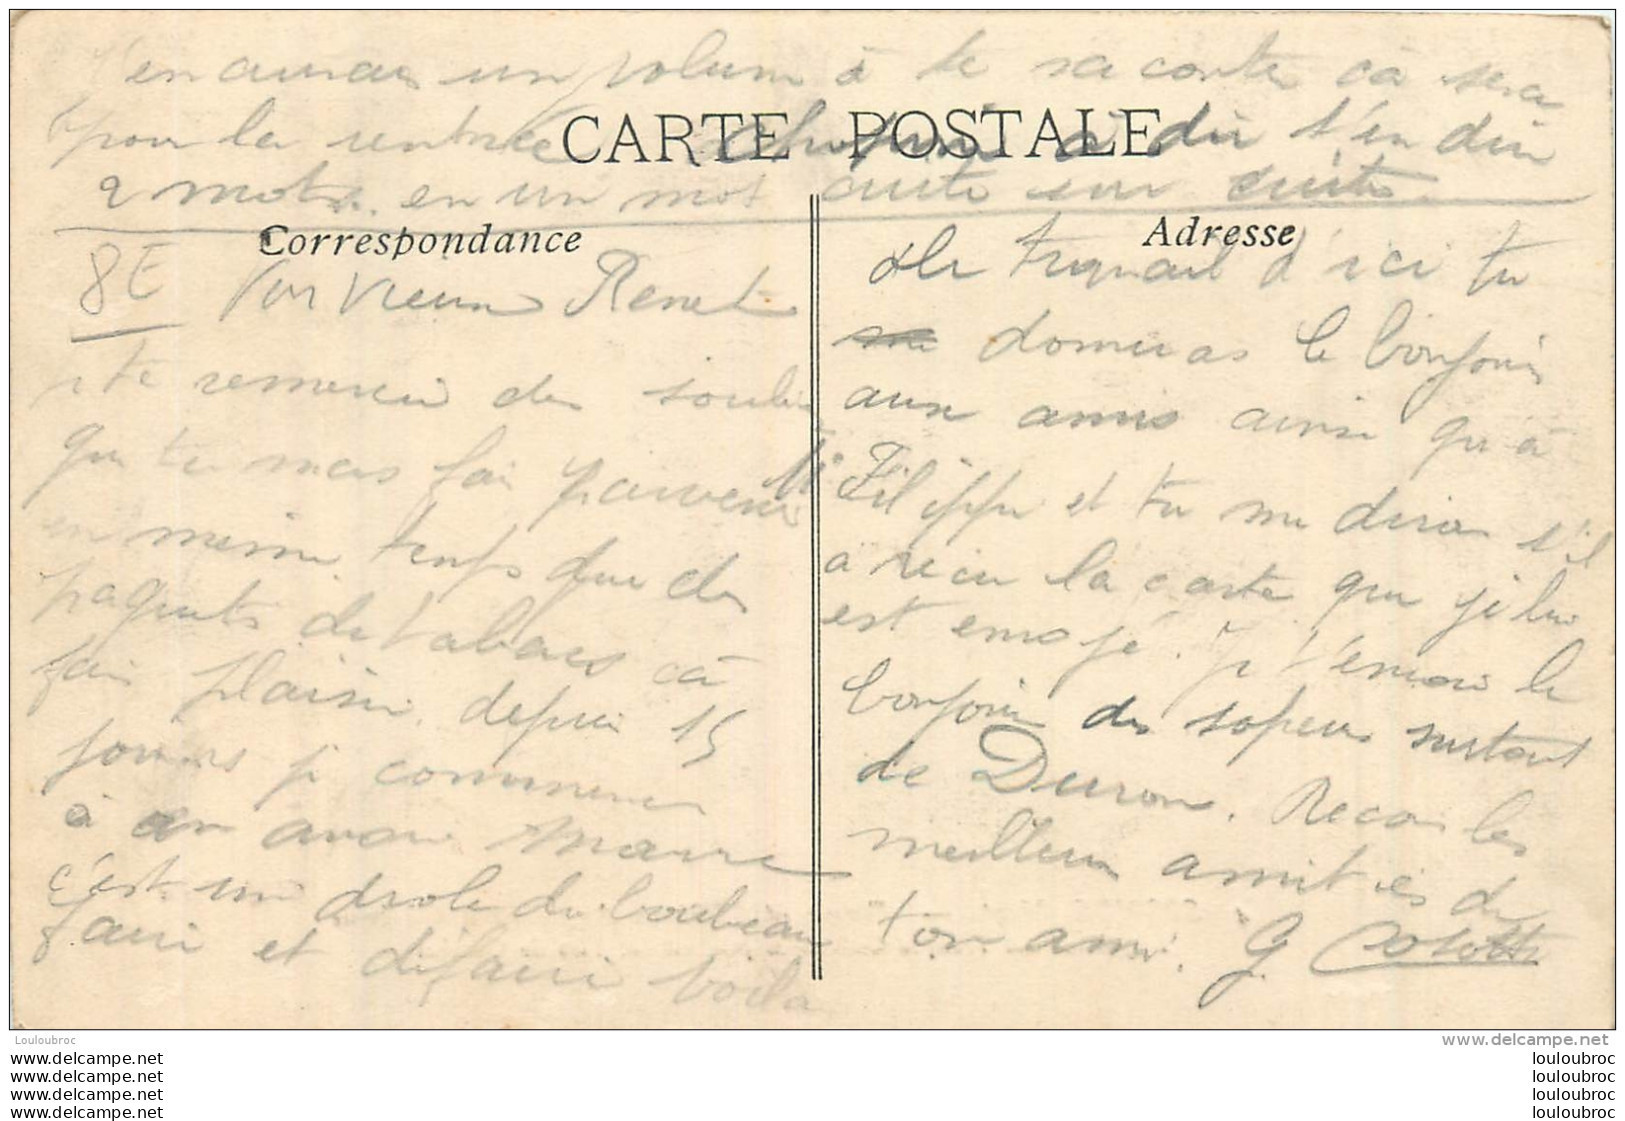 J'en aurais un volume à te raconte cà sera
pour la rentrée à dir t'en dire
2 mots en un mot cuite sur cuite
CARTE POSTALE
Correspondance
Adresse
8E
Mon vieux Renet
je te remercie des
que tu mas fai parvenir
en même temps que des
paquets de tabacs cà
fai plaisir. depuis 15
jours je commence
à en avoir marre
c'est un drole de boubeau
faire et defaire voila
le travail d'ici tu
donneras le bonjour
aux amis ainsi qu'à
Filippe et tu me diras s'il
a recu la carte que je lui
est envoyé. Je t'envoie le
bonjour des sapeurs surtout
de Duron. Recois les
meilleurs amitiés de
ton ami. G
Louloubroc
www.delcampe.net
www.delcampe.net
www.delcampe.net
www.delcampe.net
www.delcampe.net
louloubroc
louloubroc
louloubroc
louloubroc